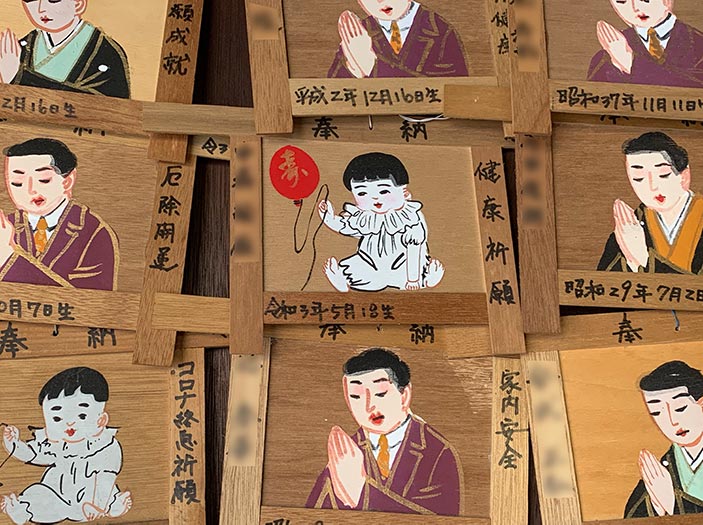 願成就
2月16日生
平成2年12月16日生
健康
昭和37年11月11日
奉 納
令3
厄除開運
0月7日生
奉 納
寿
健康祈願
令和3年5月18日生
昭和29年7月2日
奉 納
コロナ終息祈願
奉 納
家内安全
奉